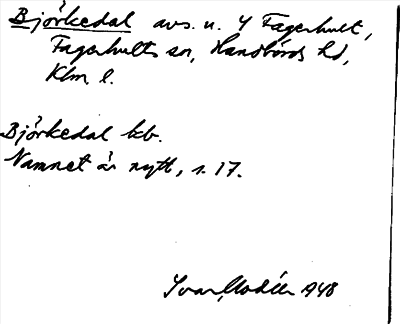 Björkedal avs. u. 4 Fagerhult,
Fagerhults sn, Handbörds hd,
Klm l.
Björkedal kb.
Namnet är nytt, s. 17.
Ivar Modéer 1948